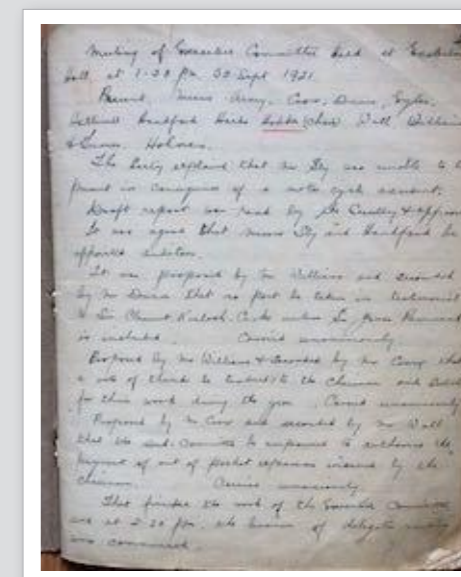 Meeting of Executive Committee held at
Hall at 1-30 pm 30 Sept 1921.
Present. Messrs Cox, Davis, Eyles,
Handford Hobbs (Chair) Wall, Williams
Holmes.
The Secty explained that Mr Sly was unable to be
present in consequence of a motor cycle accident.
Draft report was read by the &
It was agreed that Messrs Sly and Handford be
appointed
It was proposed by Mr Williams and seconded
by Mr Davis that no part be taken in testimonial
to Sir Clement Kinloch-Cooke unless Sir
is included. Carried unanimously
Proposed by Mr Williams & seconded by Mr Cox that
a vote of thanks be tendered to the Chairman and
for their work during the year. Carried unanimously
Proposed by Mr Cox and seconded by Mr Wall
that the sub-Committee be empowered to authorise the
payment of out of pocket expenses incurred by the
Chairman. Carried unanimously
That finished the work of the Executive Committee
and at 2-30 pm. the business of delegate meeting
was commenced.